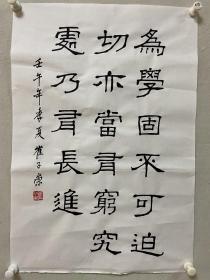 為學固不可迫
切亦當有窮究
處乃有長進
壬午年季夏崔子崇